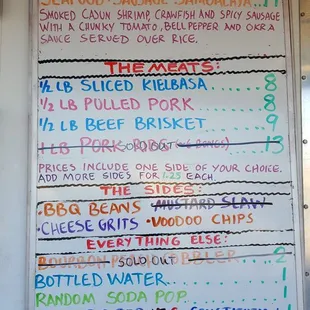 SEAFOOD SAUSAGE JAMBALAYA...11
SMOKED CAJUN SHRIMP, CRAWFISH AND SPICY SAUSAGE
WITH A CHUNKY TOMATO, BELL PEPPER AND OKRA
SAUCE SERVED OVER RICE.
THE MEATS:
1/2 LB SLICED KIELBASA....8
1/2 LB PULLED PORK......8
1/2 LB BEEF BRISKET.....9
1 LB PORK SOLD OUT 13
PRICES INCLUDE ONE SIDE OF YOUR CHOICE.
ADD MORE SIDES FOR 1.25 EACH.
THE SIDES:
•BBQ BEANS •MUSTARD SLAW
•CHEESE GRITS •VOODOO CHIPS
EVERYTHING ELSE:
BOURBON COBBLER...2
SOLD OUT
BOTTLED WATER..........1
RANDOM SODA POP.........1